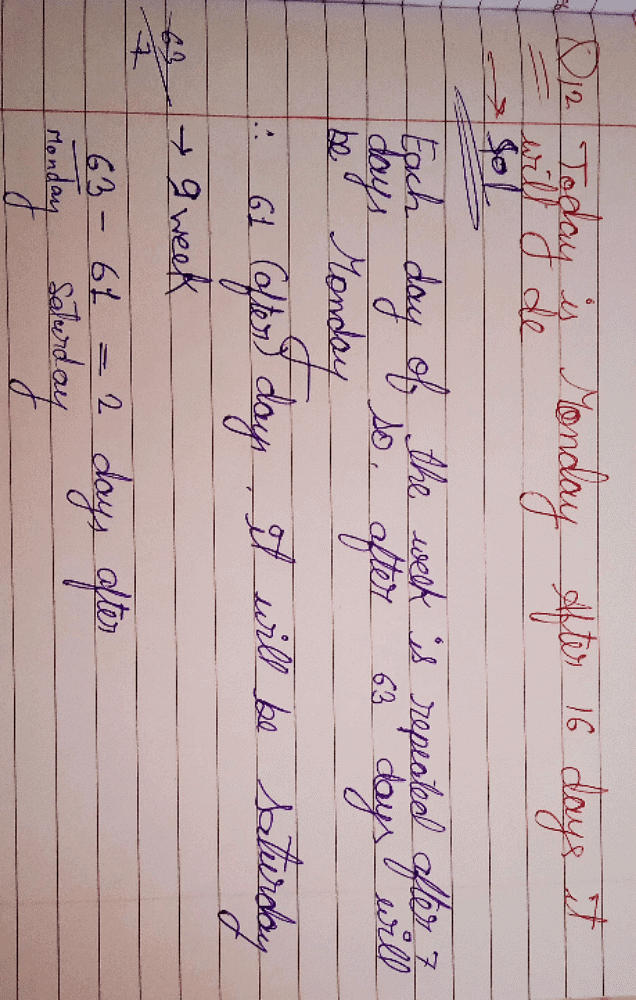 Q12 Today is Monday After 16 days it
will be
→ Sol
Each day of the week is repeated after 7
days so, after 63 days will
be Monday
∴ 61 (after) day, it will be Saturday
63/7 → 9 week
63 - 61 = 2 days after
Monday Saturday